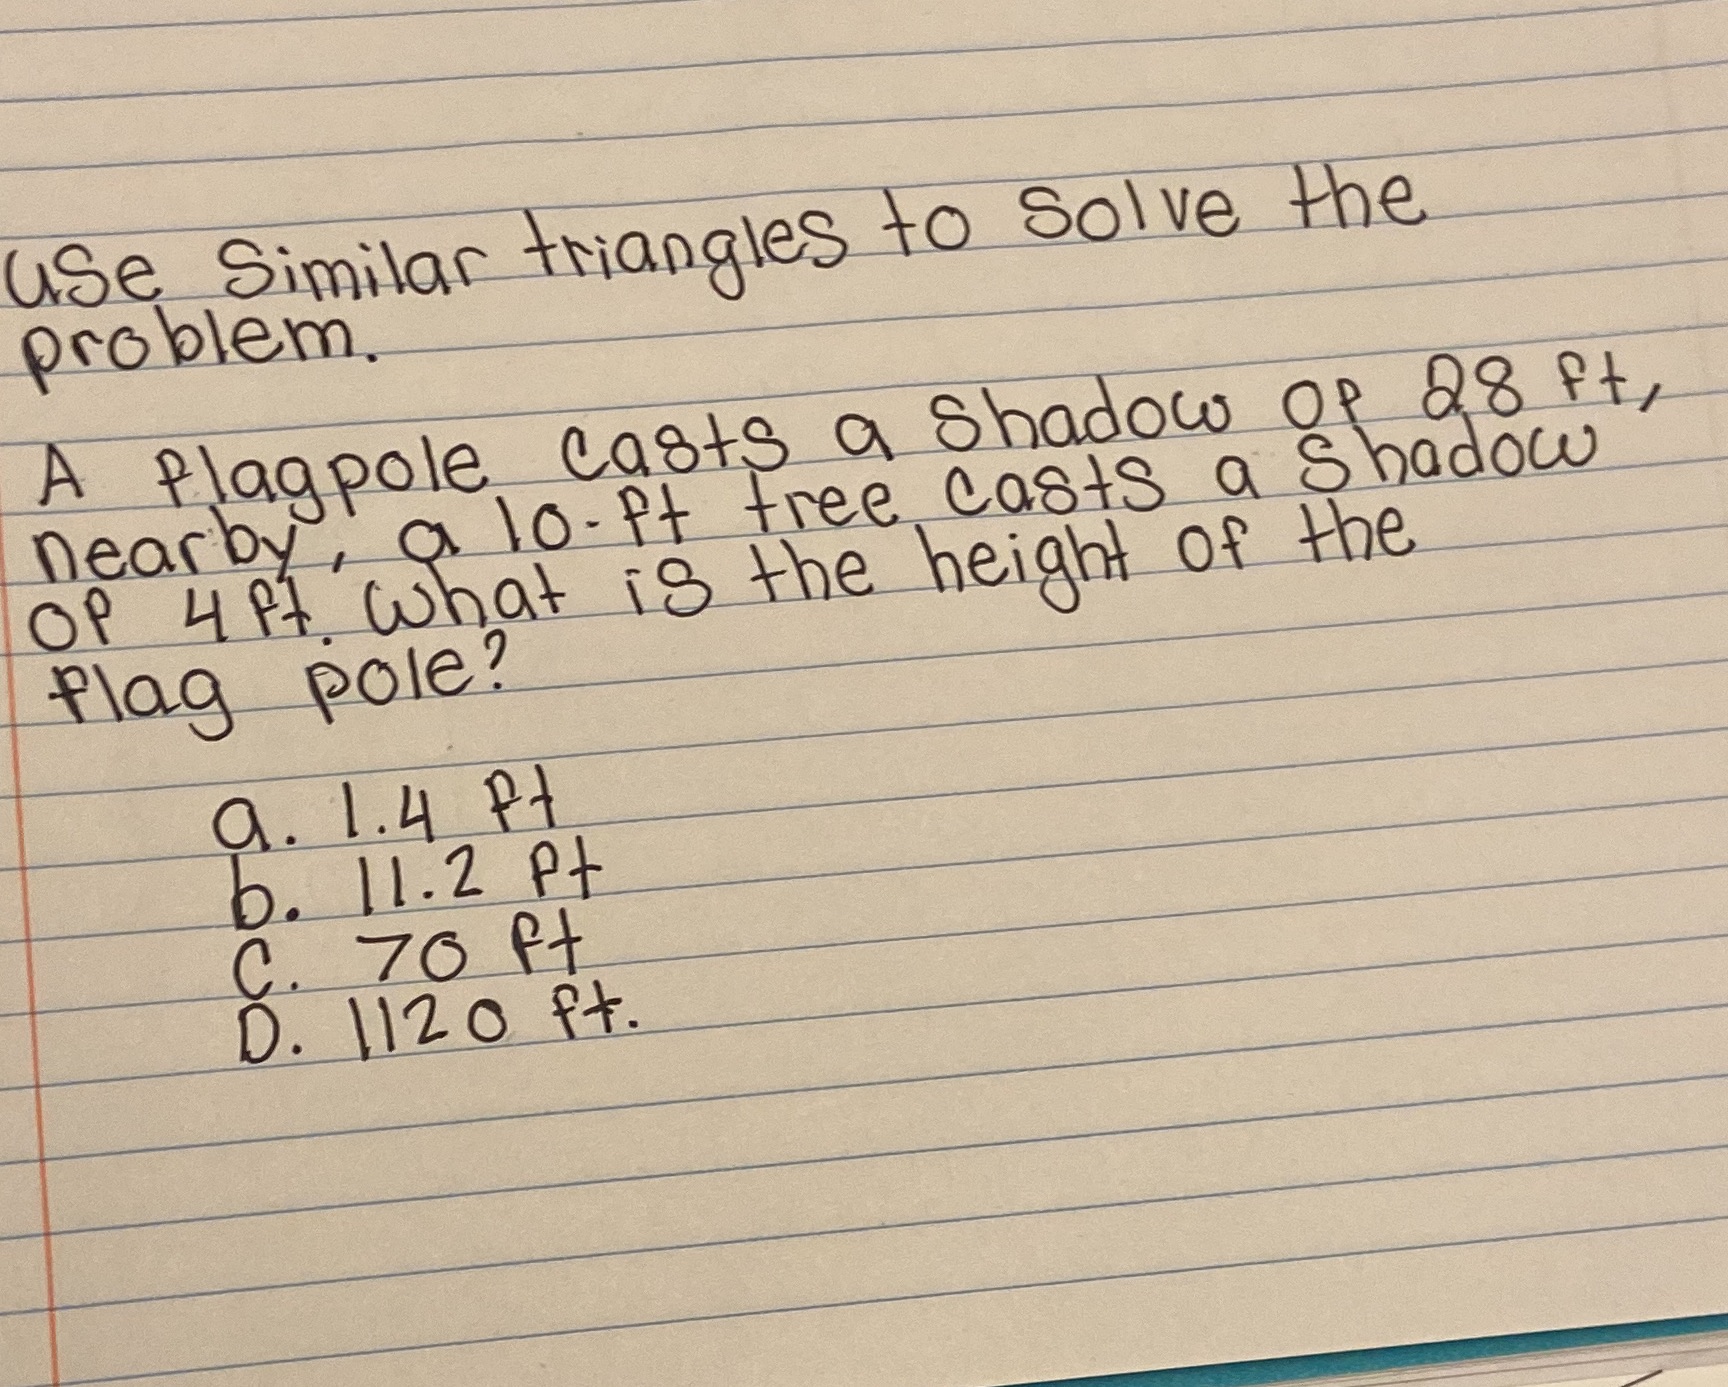 use similar triangles to solve the
problem.
A flagpole casts a shadow of 28 ft,
nearby, a 10-ft tree casts a shadow
of 4 ft. What is the height of the
flag pole?
a. 1.4 ft
b. 11.2 ft
C. 70 ft
D. 1120 ft.